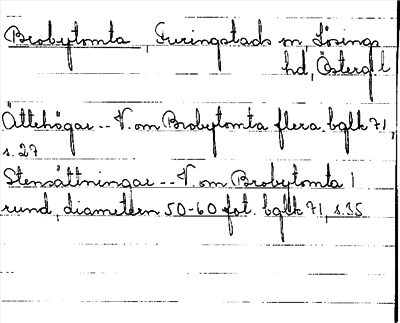 Brobytomta, Furingstads sn, Lösings
hd, Östergl
Ättehögar -- V. om Brobytomta flera. bglk 71,
s. 27
Stensättningar -- V. om Brobytomta 1
rund, diametern 50-60 fot. bglk 71, s. 35